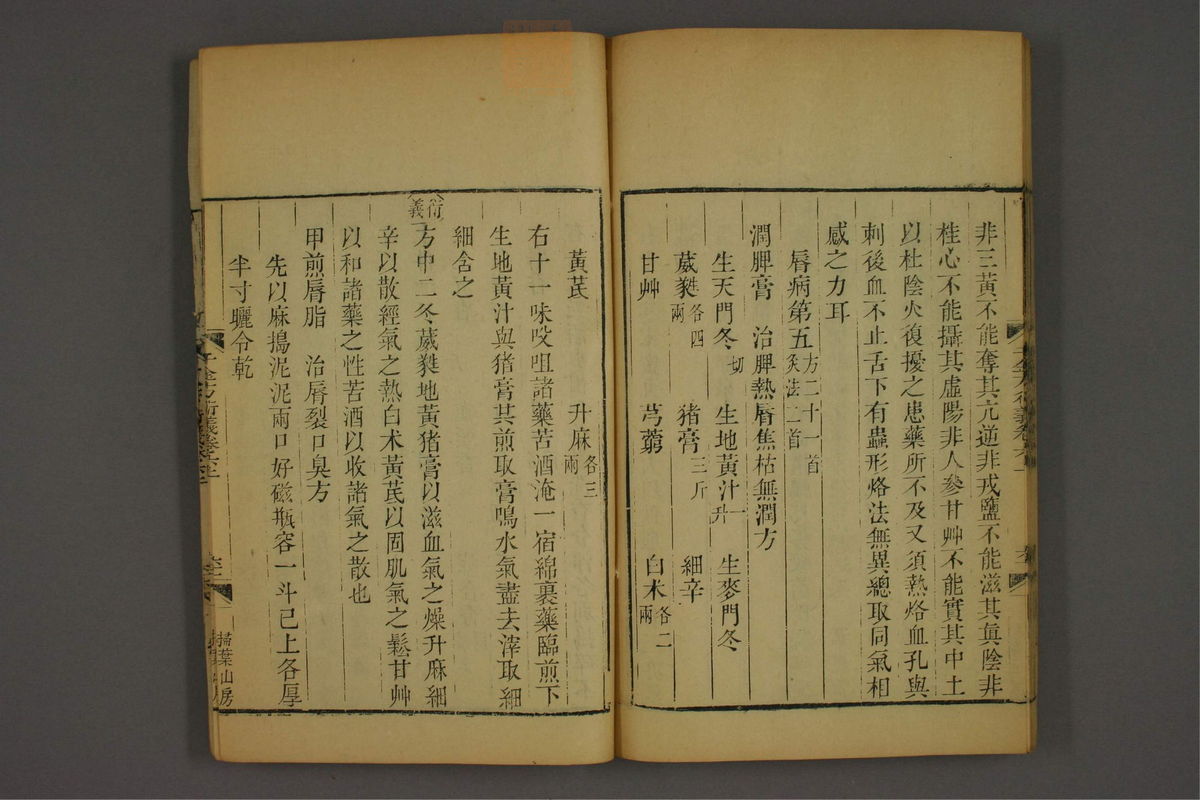 非三黃不能奪其亢逆非戎鹽不能滋其眞陰非
桂心不能攝其虛陽非人參甘艸不能實其中土
以杜陰火復擾之患藥所不及又須熱烙血孔與
刺後血不止舌下有蟲形烙法無異總取同氣相
感之力耳
脣病第五方二十一首灸法二首
潤脾膏　治脾熱脣焦枯無潤方
生天門冬切　生地黃汁一升　生麥門冬
葳蕤各四兩　猪膏三斤　細辛
甘艸　芎藭　白朮各二兩
黃芪　升麻各三兩
右十一味㕮咀諸藥苦酒淹一宿綿裹藥臨煎下
生地黃汁與猪膏共煎取膏鳴水氣盡去滓取細
細含之
衍義
方中二冬葳蕤地黃猪膏以滋血氣之燥升麻細
辛以散經氣之熱白朮黃芪以固肌氣之鬆甘艸
以和諸藥之性苦酒以收諸氣之散也
甲煎脣脂　治脣裂口臭方
先以麻搗泥泥兩口好磁瓶容一斗已上各厚
半寸曬令乾
掃葉山房